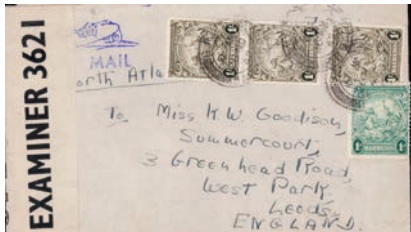 EXAMINER 3621
MAIL
orth Atla
To Miss K.W. Goodison,
Summercourt,
3 Green head Road,
West Park
Leeds.
ENGLAND.